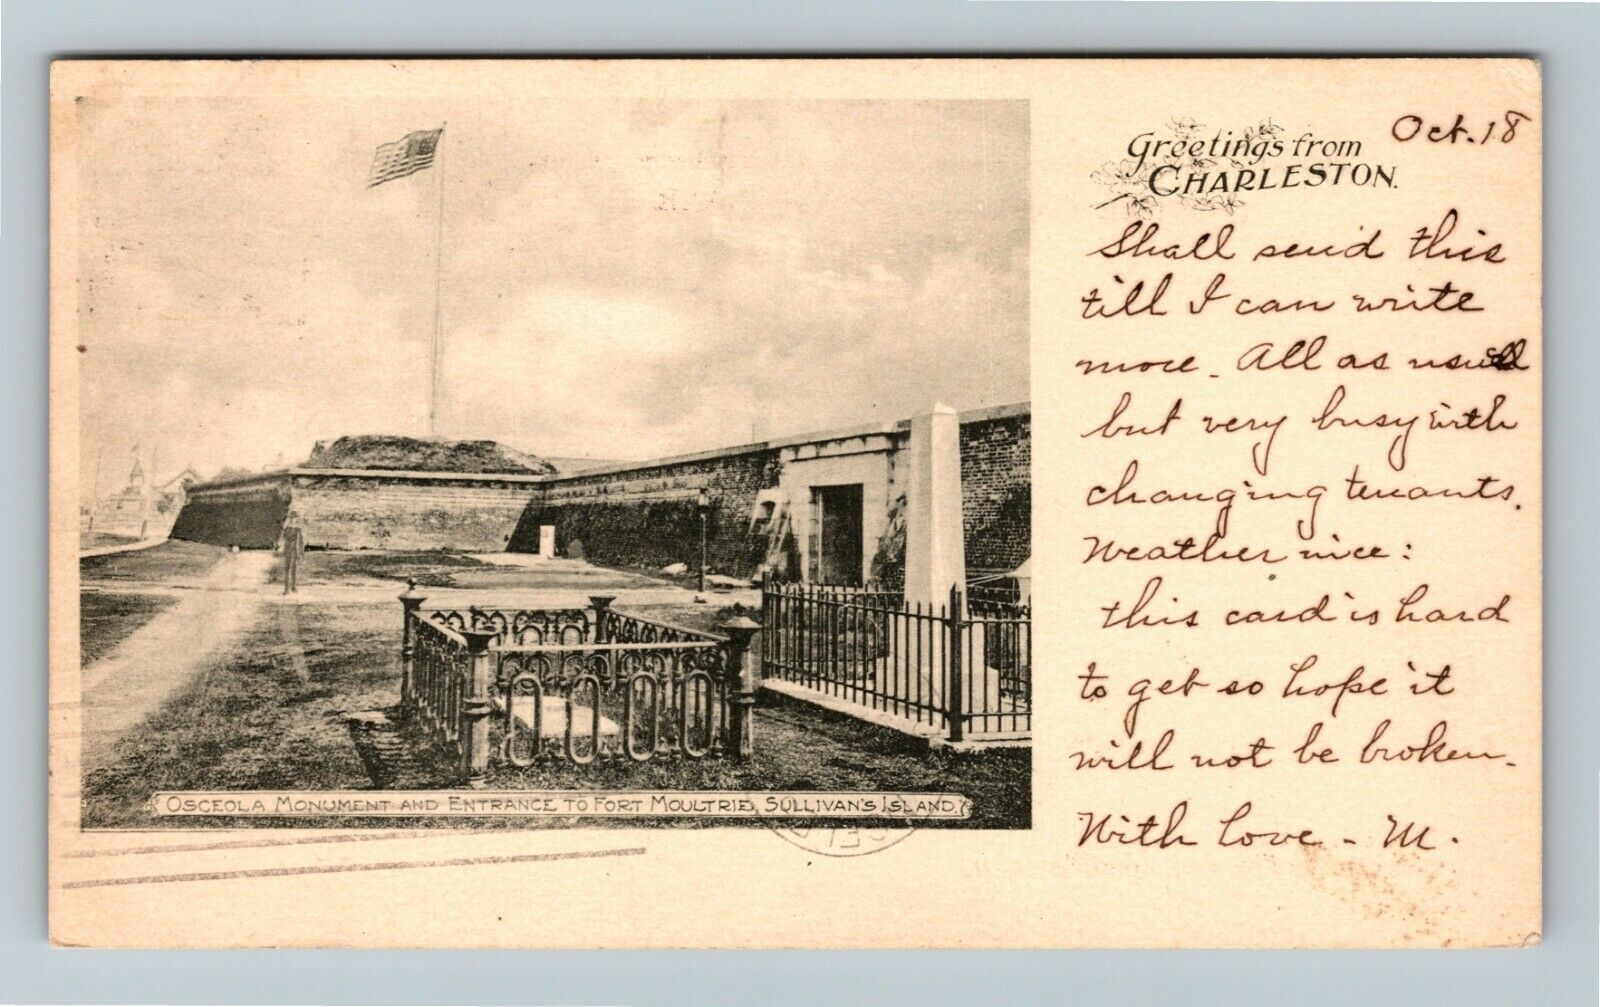 Greetings from
CHARLESTON.
Oct. 18
Shall send this
till I can write
more. All as usual
but very busy with
changing tenants.
Weather nice:
this card is hard
to get so hope it
will not be broken.
With love - M.
OSCEOLA MONUMENT AND ENTRANCE TO FORT MOULTRIE, SULLIVAN'S ISLAND.